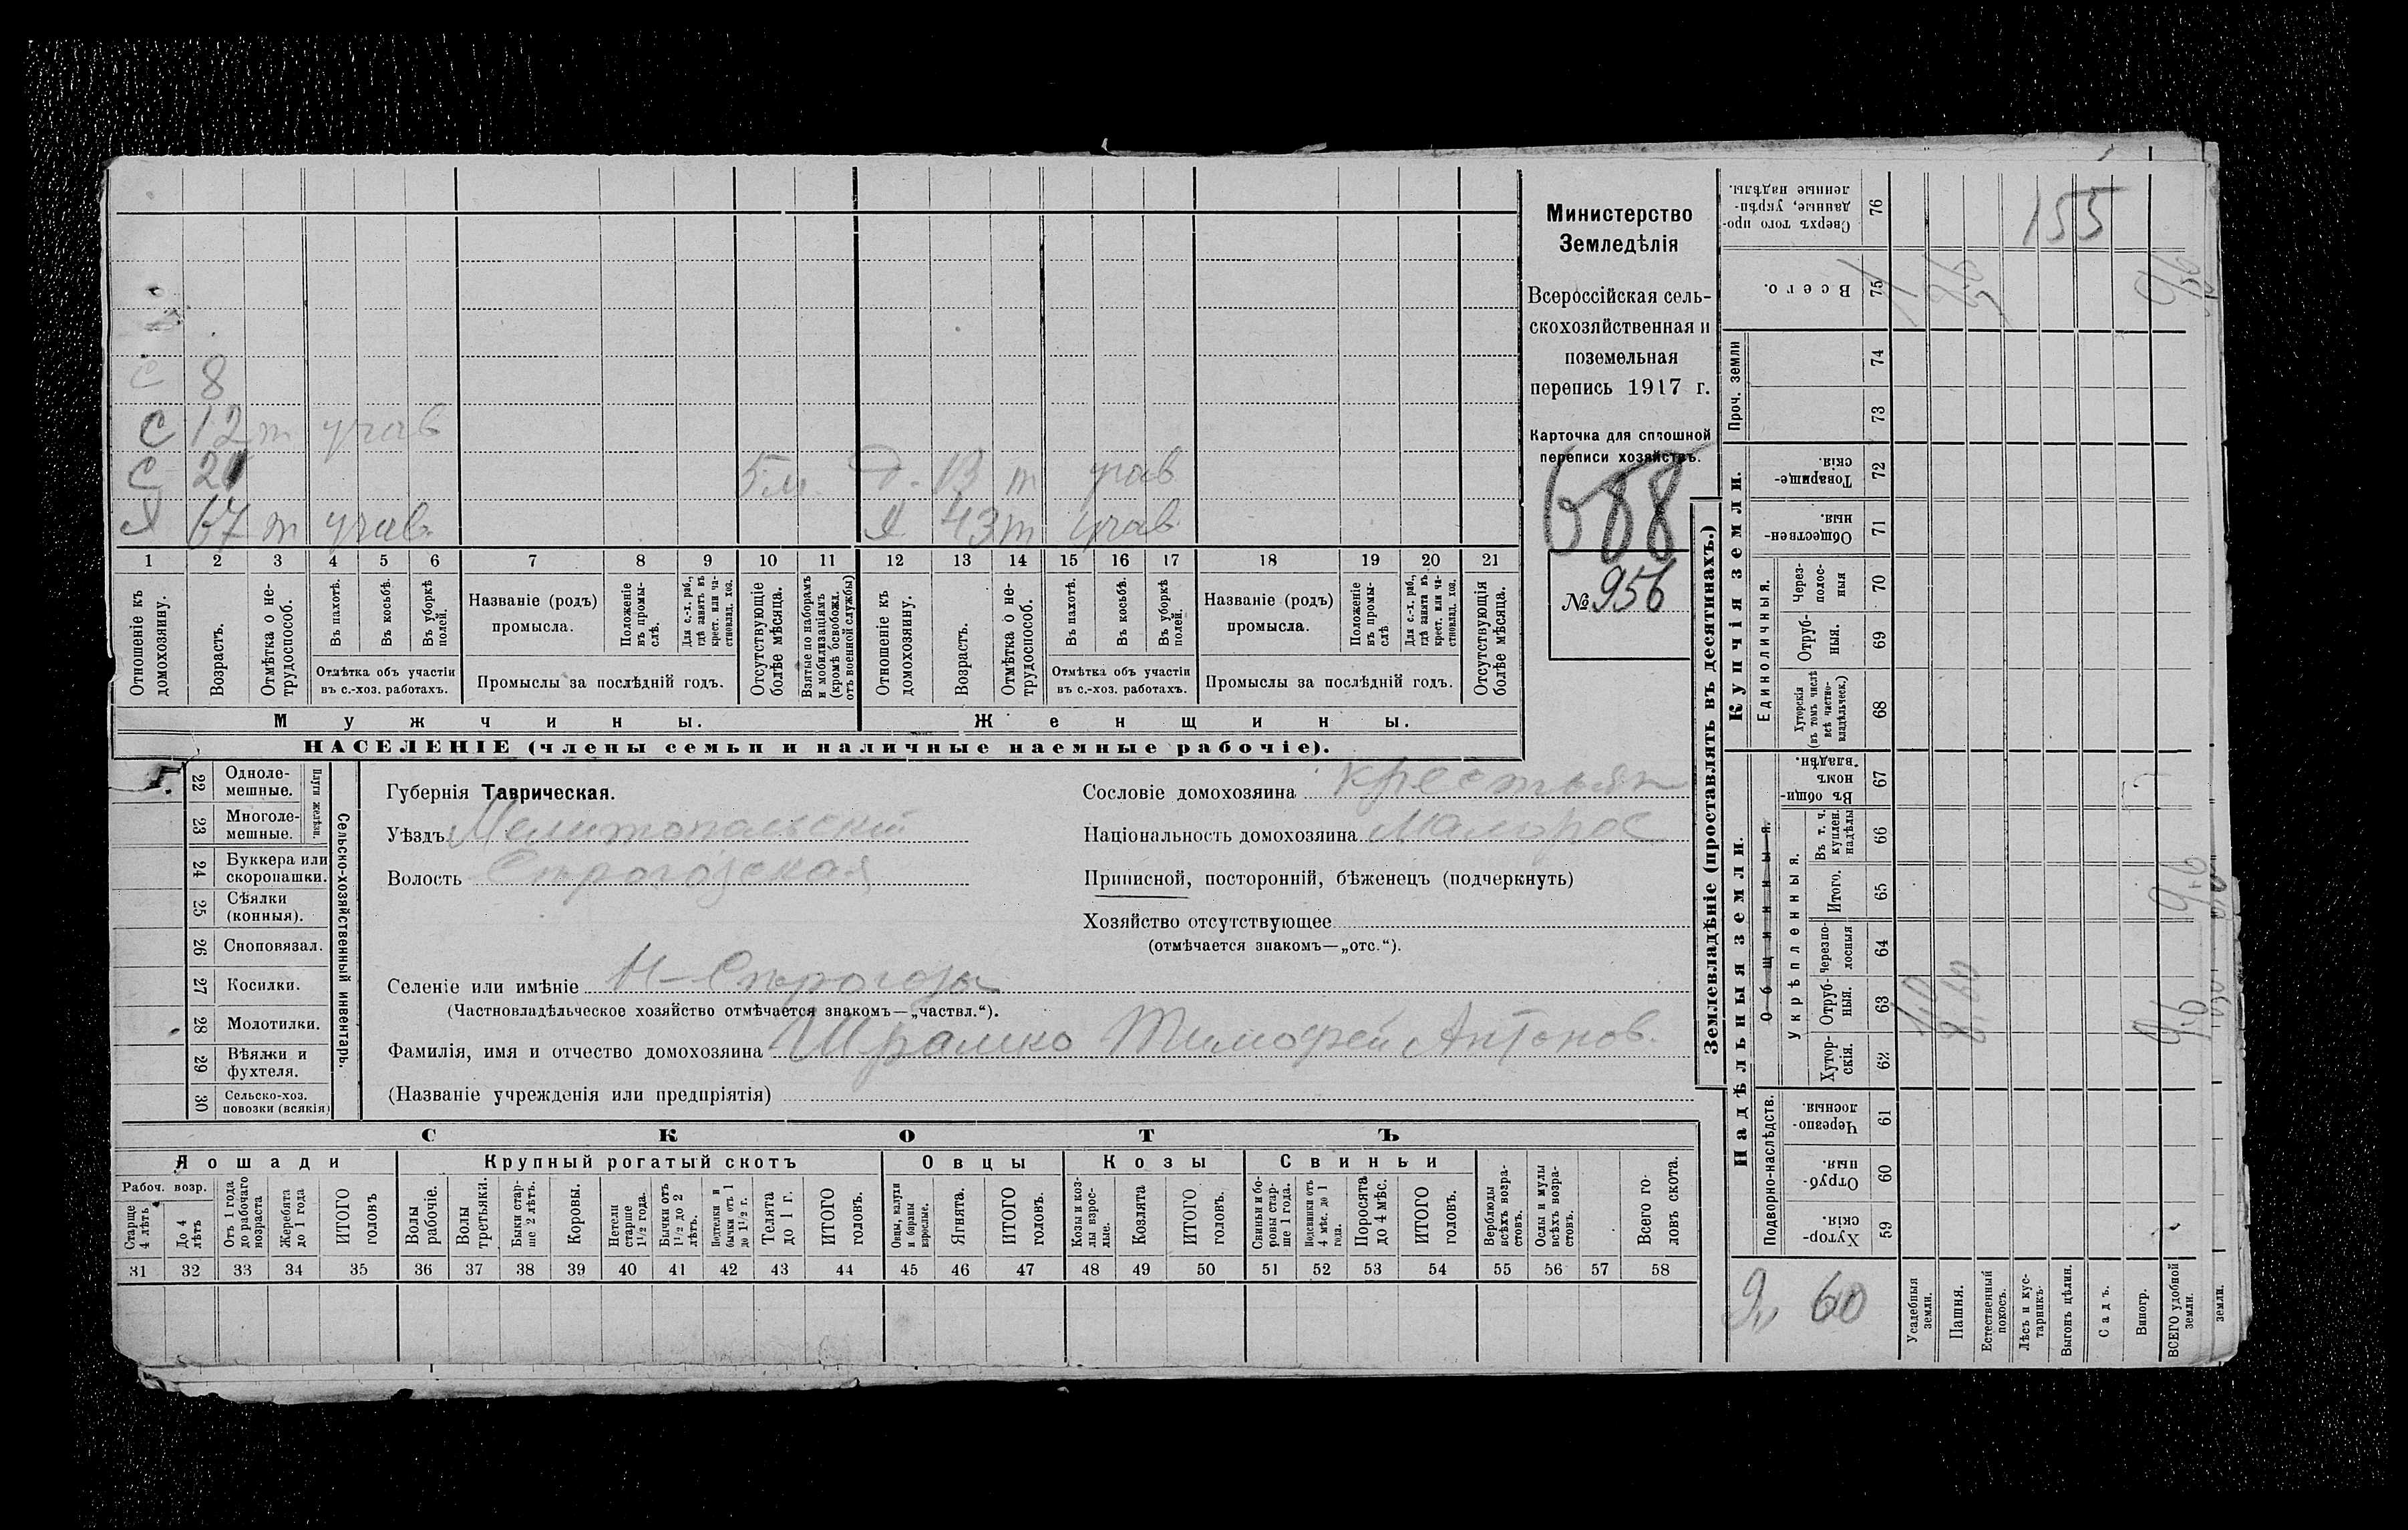 С 8
С 12 т учав
С 21 5 м. Д. 13 т учав
Я 67 т учав. Я 43 т учав.
1 2 3 4 5 6 7 8 9 10 11 12 13 14 15 16 17 18 19 20 21
Отношеніе къ домохозяину.
Возрастъ.
Отмѣтка о не-трудоспособ.
Въ пахотѣ.
Въ косьбѣ.
Въ уборкѣ полей.
Отмѣтка объ участіи въ с.-хоз. работахъ.
Названіе (родъ) промысла.
Положеніе въ промы-слѣ.
Для с.-х. раб., гдѣ занятъ въ крест. или ча-стновлад. хоз.
Промыслы за послѣдній годъ.
Отсутствующіе болѣе мѣсяца.
Взятые по наборамъ и мобилизаціямъ (кромѣ освобожд. отъ военной службы)
Отношеніе къ домохозяину.
Возрастъ.
Отмѣтка о не-трудоспособ.
Въ пахотѣ.
Въ косьбѣ.
Въ уборкѣ полей.
Отмѣтка объ участіи въ с.-хоз. работахъ.
Названіе (родъ) промысла.
Положеніе въ промы-слѣ
Для с.-х. раб., гдѣ занята въ крест. или ча-стновлад. хоз.
Промыслы за послѣдній годъ.
Отсутствующія болѣе мѣсяца.
Мужчины. Женщины.
НАСЕЛЕНІЕ (члены семьи и наличные наемные рабочіе).
Министерство
Земледѣлія
Всероссійская сель-
скохозяйственная и
поземельная
перепись 1917 г.
Карточка для сплошной
переписи хозяйствъ.
688
№ 956
22 Одноле-мешные.
23 Многоле-мешные.
Плуги желѣзн.
24 Буккера или скоропашки.
25 Сѣялки (конныя).
26 Сноповязал.
27 Косилки.
28 Молотилки.
29 Вѣялки и фухтеля.
30 Сельско-хоз. повозки (всякія)
Сельско-хозяйственный инвентарь.
Губернія Таврическая.
Уѣздъ Мелитопольскій
Волость Строгозская
Сословіе домохозяина крестьян
Національность домохозяина Малорос
Приписной, посторонній, бѣженецъ (подчеркнуть)
Хозяйство отсутствующее
(отмѣчается знакомъ—„отс.“).
Селеніе или имѣніе Н-Строгозы
(Частновладѣльческое хозяйство отмѣчается знакомъ—„частвл.“).
Фамилія, имя и отчество домохозяина Шрамко Тимофей Антонов.
(Названіе учрежденія или предпріятія)
СКОТЪ
Лошади Крупный рогатый скотъ Овцы Козы Свиньи
Рабоч. возр.
Старше 4 лѣтъ
До 4 лѣтъ
Отъ 1 года до рабочаго возраста
Жеребята до 1 года
ИТОГО головъ
Волы рабочіе.
Волы третьяки.
Быки стар-ше 2 лѣтъ.
Коровы.
Нетели старше 1 1/2 года.
Бычки отъ 1 1/2 до 2 лѣтъ.
Нетелки и бычки отъ 1 до 1 1/2 г.
Телята до 1 г.
ИТОГО головъ.
Овцы, валухи и бараны взрослые.
Ягнята.
ИТОГО головъ.
Козы и коз-лы взрос-лые.
Козлята
ИТОГО головъ.
Свиньи и бо-ровы стар-ше 1 года.
Подсвинки отъ 4 мѣс. до 1 года.
Поросята до 4 мѣс.
ИТОГО головъ.
Верблюды всѣхъ возра-стовъ.
Ослы и мулы всѣхъ возра-стовъ.
Всего го-ловъ скота.
31 32 33 34 35 36 37 38 39 40 41 42 43 44 45 46 47 48 49 50 51 52 53 54 55 56 57 58
Землевладѣніе (проставлять въ десятинахъ.)
Надѣльныя земли.
Купчія земли.
Проч. земли
Подворно-наслѣдств.
Общинныя.
Укрѣпленныя.
Единоличныя.
Хутор-скія. 59
Отруб-ныя. 60
Черезпо-лосныя. 61
Хутор-скія. 62
Отруб-ныя. 63
Черезпо-лосныя 64
Итого. 65
Въ т. ч. куплен. надѣлы 66
Въ общи-номъ владѣн. 67
Хуторскія (въ томъ числѣ всѣ частно-владѣльческ.) 68
Отруб-ныя. 69
Через-полос-ныя 70
Обществен-ныя. 71
Товарище-скія. 72
73
74
Всего. 75
Сверхъ того про-данные, укрѣп-ленные надѣлы. 76
155
9,, 60
Усадебныя земли.
Пашня.
Естественный покосъ.
Лѣсъ и кус-тарникъ.
Выгонъ цѣлин.
Садъ.
Виногр.
ВСЕГО удобной земли.
земли.